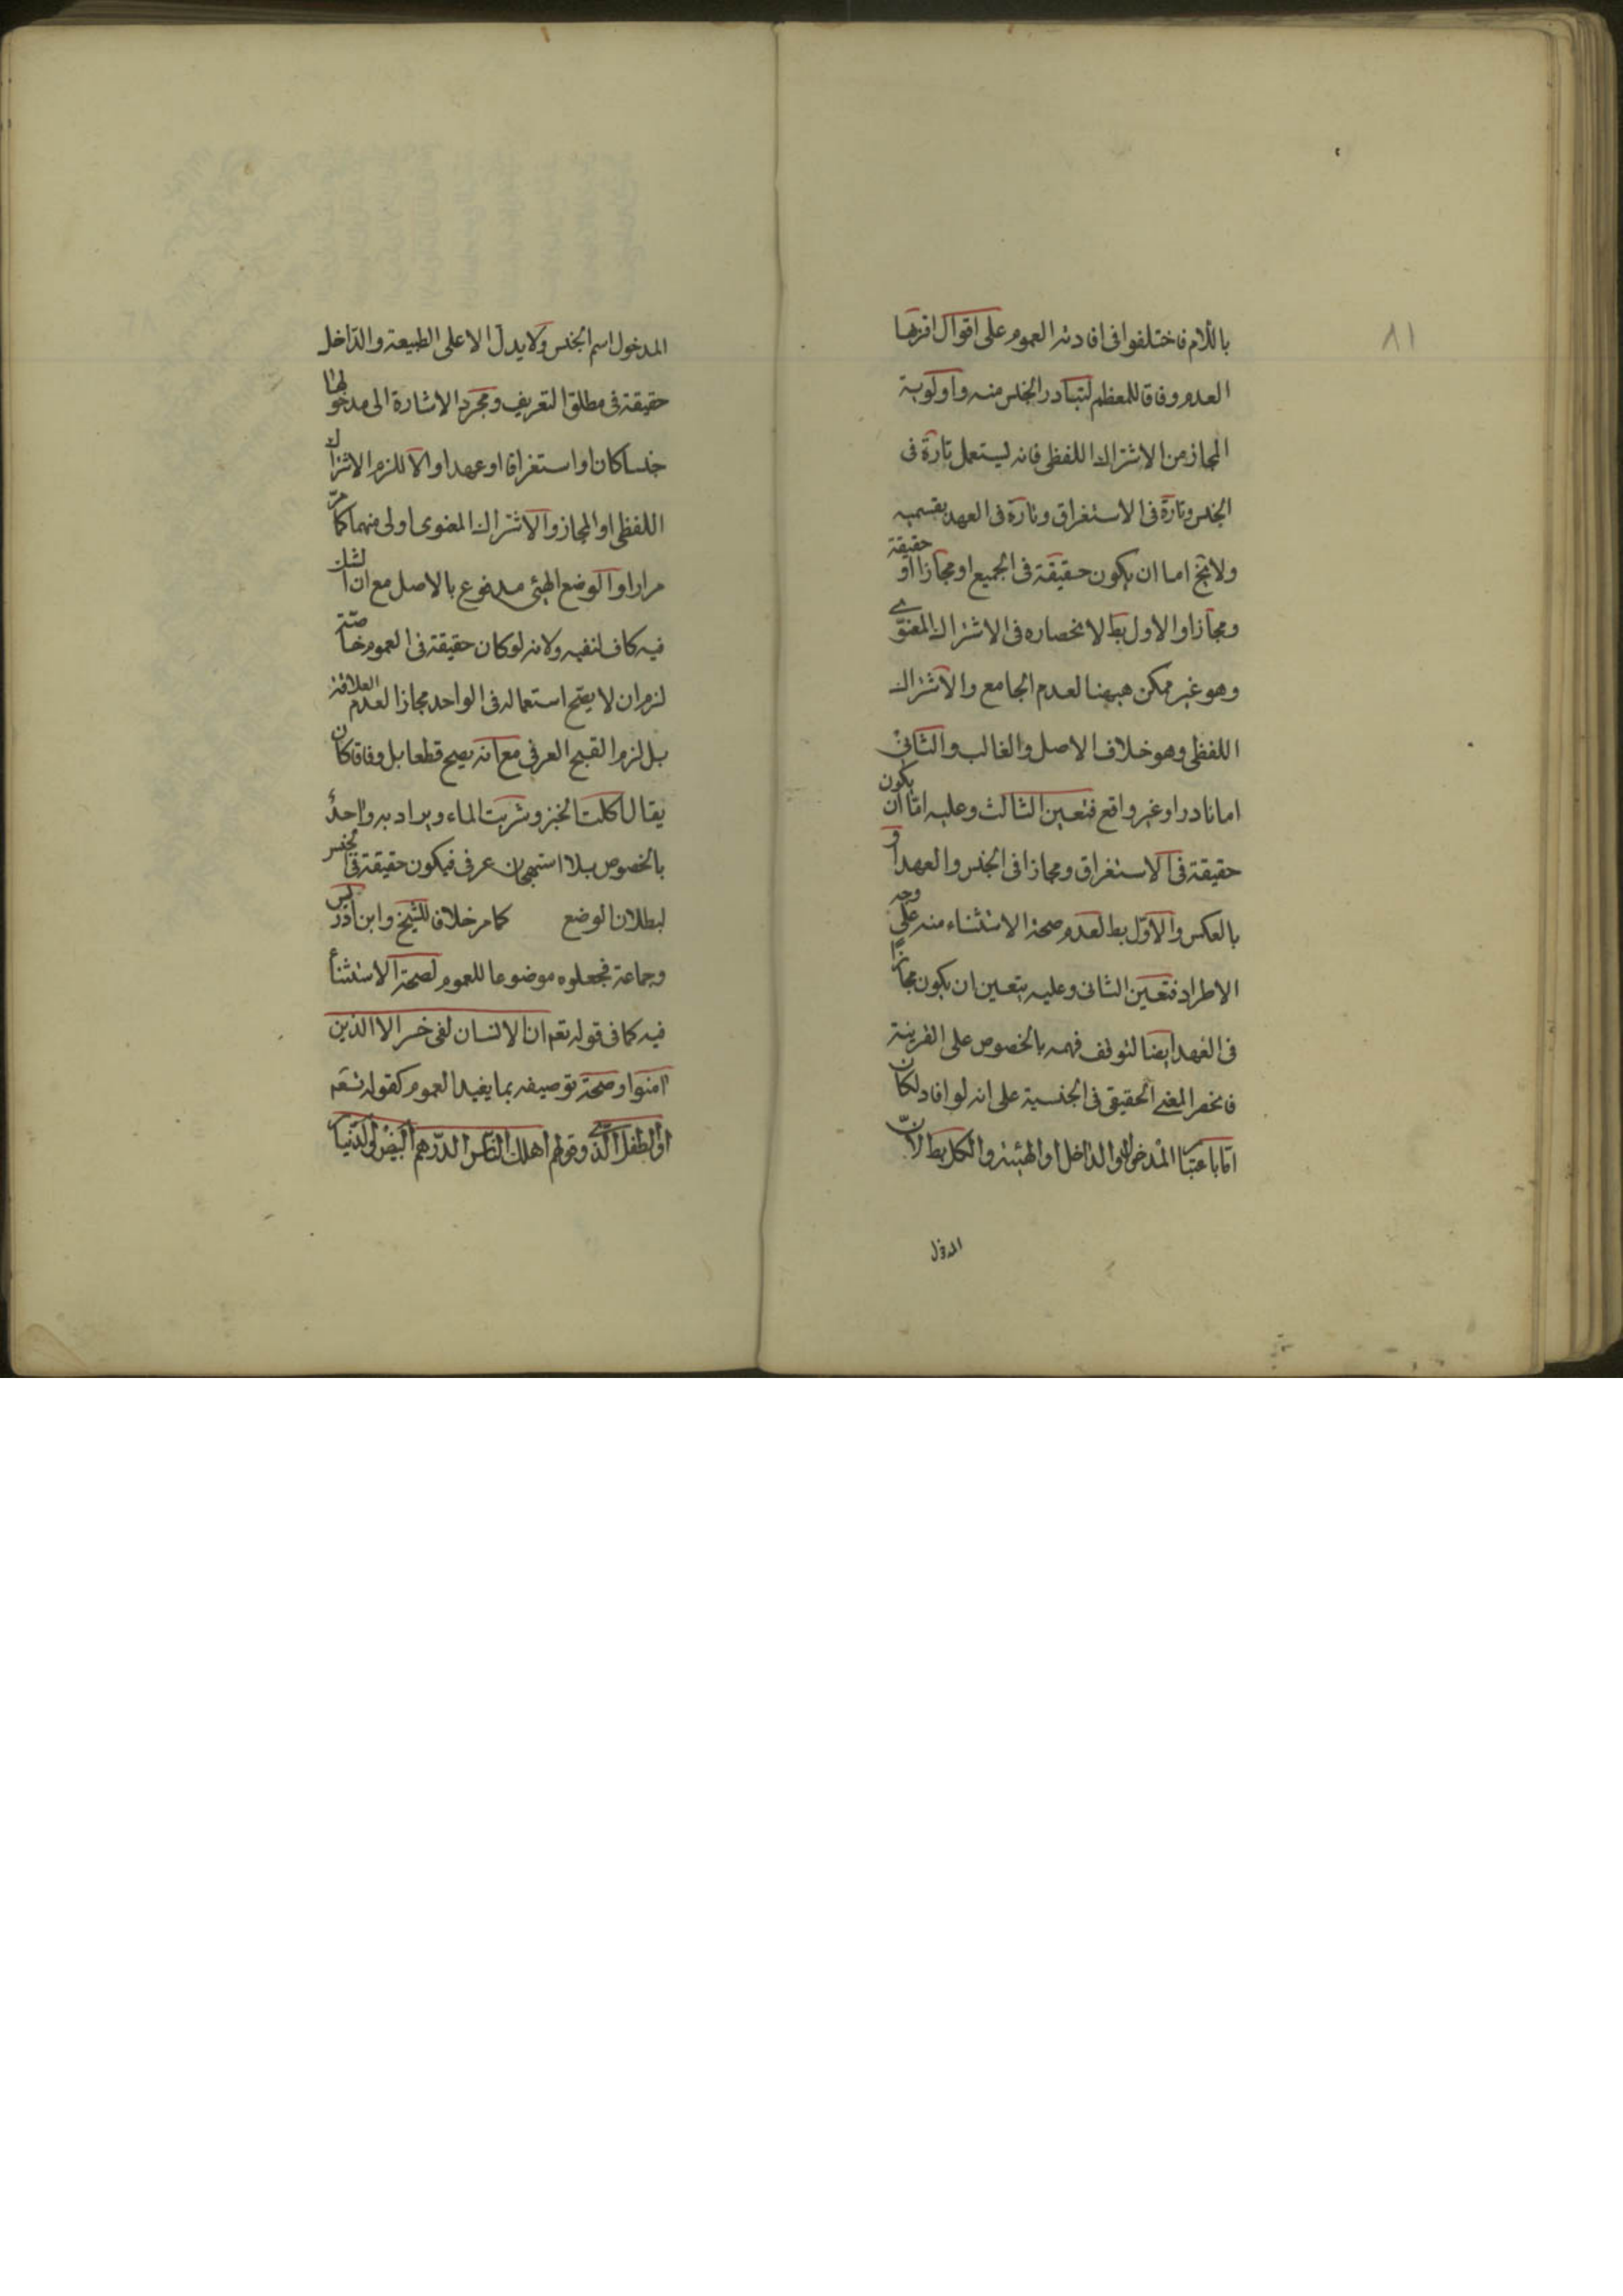 ٨١
باللام فاختلفوا فى افادته العموم على اقوال اقربها
العدم وفاقا للمعظم لتبادر الجنس منه واولوية
المجاز من الاشتراك اللفظى فانه ليستعمل تارة فى
الجنس وتارة فى الاستغراق وتارة فى العهد بقسميه
ولا يخ اما ان يكون حقيقة فى الجميع او مجازا او حقيقة
ومجازا والاول بط لانحصاره فى الاشتراك المعنوى
وهو غير ممكن هيهنا لعدم الجامع والاشتراك
اللفظى وهو خلاف الاصل والغالب والثانى
اما نادر او غير واقع فتعين الثالث وعليه اما ان يكون
حقيقة فى الاستغراق ومجازا فى الجنس والعهد او
بالعكس والاول بط لعدم صحة الاستثناء منه على وجه
الاطراد فتعين الثانى وعليه يتعين ان يكون مجازا
فى العهد ايضا لتوقف فهمه بالخصوص على القرينة
فانحصر المعنى الحقيقى فى الجنسية على انه لو افاد لكان
اما باعتبا المدخول او الداخل او الهيئة والكل بط لان
المدخول
المدخول اسم الجنس ولا يدل الا على الطبيعة والداخل
حقيقة فى مطلق التعريف ومجرد الاشارة الى مدخولها
جنسا كان او استغراقا او عهدا والا للزم الاشتراك
اللفظى او المجاز والاشتراك المعنوى اولى منهما كما مر
مرارا والوضع الهيئى مدفوع بالاصل مع ان الشك
فيه كاف لنفيه ولانه لو كان حقيقة فى العموم خاصة
لزم ان لا يصح استعماله فى الواحد مجازا لعدم العلاقة
بل لزم القبح العرفى مع انه يصح قطعا بل وفاقا كان
يقال اكلت الخبز وشربت الماء ويراد به واحد
بالخصوص بلا استهجان عرفى فيكون حقيقة فى الجنس
لبطلان الوضع كما مر خلافا للشيخ وابن ادريس
وجماعة فجعلوه موضوعا للعموم لصحة الاستثناء
فيه كما فى قوله تعم ان الانسان لفى خسر الا الذين
امنوا وصحة توصيفه بما يفيد العموم كقوله تعم
او الطفل الذى وقولهم اهلك الناس الدرهم البيض والدنيا